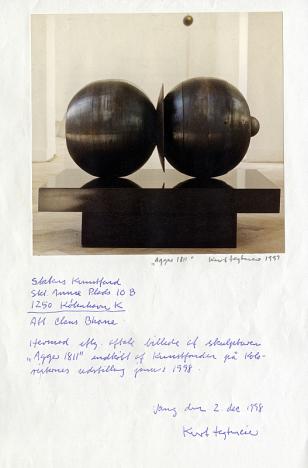 "Agger 1811" Kurt Tegtmeier 1997
Statens Kunstfond
Skt. Annæ Plads 10 B
1250 København K
Att. Claus Bhane.
Hermed eftg. aftale billede af skulpturen
"Agger 1811" indkøbt af Kunstfonden på
udstilling januar 1998.
den 2. dec 1998
Kurt Tegtmeier